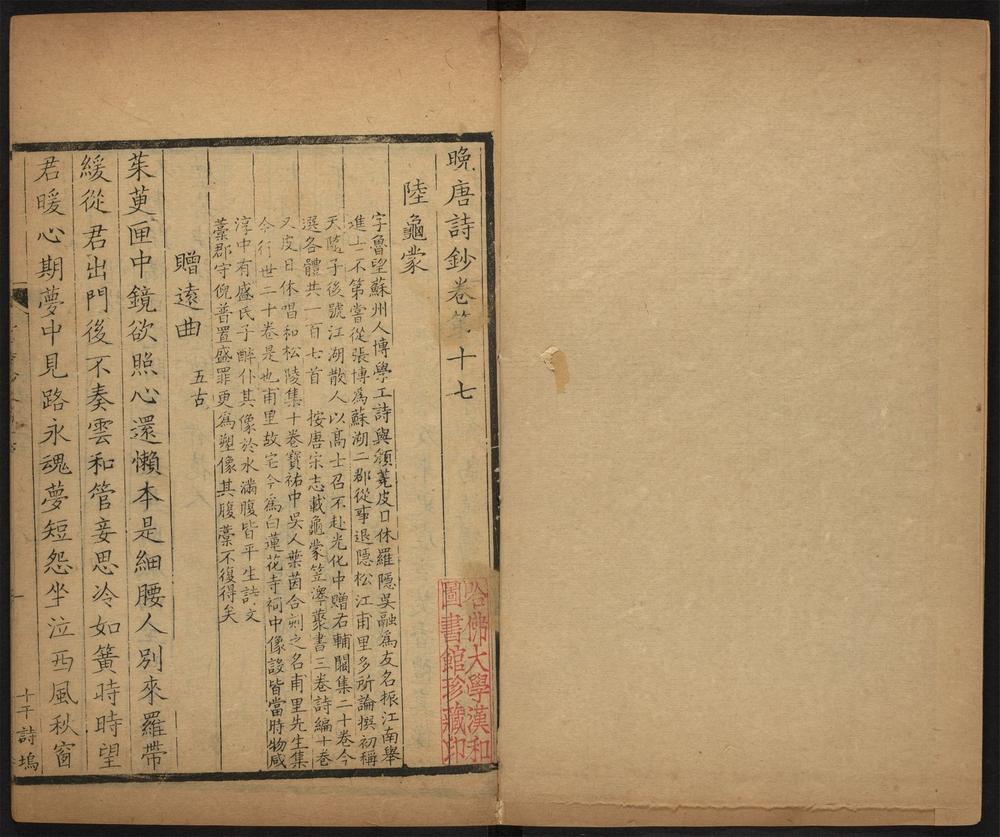 晚唐詩鈔卷第十七
陸龜蒙
字魯望蘇州人博學工詩與顏蕘皮日休羅隱吳融為友名振江南舉
進士不第嘗從張博為蘇湖二郡從事退隱松江甫里多所論撰初稱
天隨子後號江湖散人以高士召不赴光化中贈右輔闕集二十卷今
選各體共一百七首 按唐宋志載龜蒙笠澤藂書三卷詩編十卷
又皮日休唱和松陵集十卷寶祐中吳人葉茵合刻之名甫里先生集
今行世二十卷是也甫里故宅今為白蓮花寺祠中像設皆當時物咸
淳中有盛氏子醉仆其像於水滿腹皆平生詩文
藁郡守倪普置盛罪更為塑像其腹藁不復得矣
贈遠曲 五古
茱萸匣中鏡欲照心還懶本是細腰人別來羅帶
緩從君出門後不奏雲和管妾思冷如簧時時望
君暖心期夢中見路永魂夢短怨坐泣西風秋窗
十干詩塢
哈佛大學漢和
圖書館珍藏印